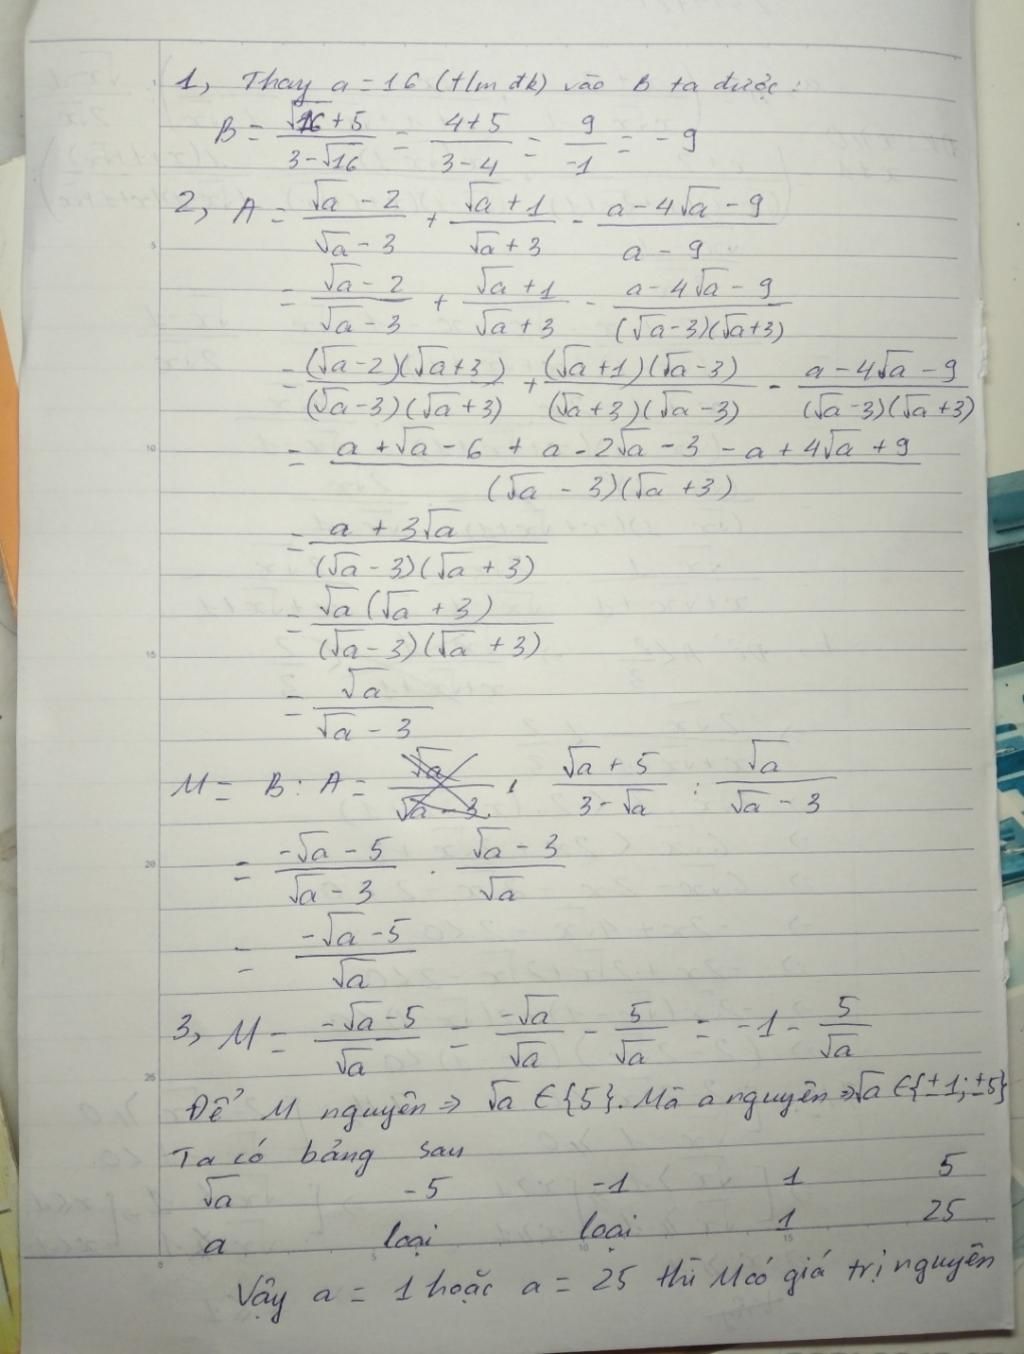 1, Thay a = 16 (t/m đk) vào B ta được :
B = (√16 + 5)/(3 - √16) = (4 + 5)/(3 - 4) = 9/-1 = - 9
2, A = (√a - 2)/(√a - 3) + (√a + 1)/(√a + 3) - (a - 4√a - 9)/(a - 9)
= (√a - 2)/(√a - 3) + (√a + 1)/(√a + 3) - (a - 4√a - 9)/((√a - 3)(√a + 3))
= ((√a - 2)(√a + 3))/((√a - 3)(√a + 3)) + ((√a + 1)(√a - 3))/((√a + 3)(√a - 3)) - (a - 4√a - 9)/((√a - 3)(√a + 3))
= (a + √a - 6 + a - 2√a - 3 - a + 4√a + 9)/((√a - 3)(√a + 3))
= (a + 3√a)/((√a - 3)(√a + 3))
= (√a (√a + 3))/((√a - 3)(√a + 3))
= √a/(√a - 3)
M = B : A = (√a + 5)/(3 - √a) : √a/(√a - 3)
= (-√a - 5)/(√a - 3) . (√a - 3)/√a
= (-√a - 5)/√a
3, M = (-√a - 5)/√a = -√a/√a - 5/√a = -1 - 5/√a
Để M nguyên => √a ∈ {5}. Mà a nguyên => √a ∈ {±1; ±5}
Ta có bảng sau
√a -5 -1 1 5
a loại loại 1 25
Vậy a = 1 hoặc a = 25 thì M có giá trị nguyên